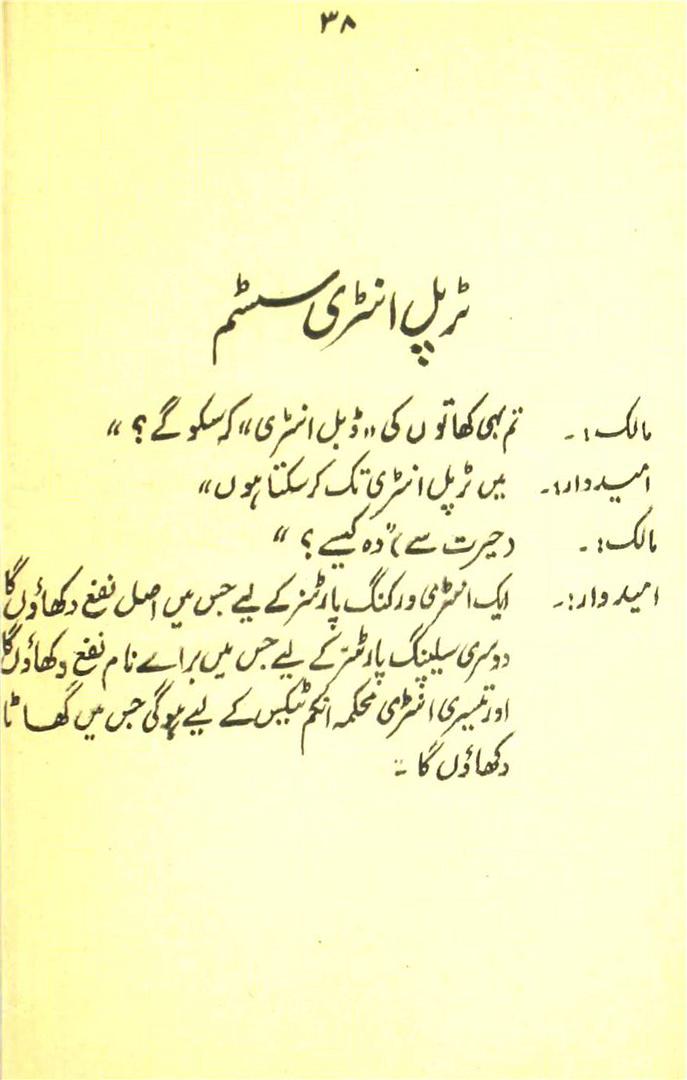 ۳۸
ٹرپل انٹری سسٹم
مالک:۔ تم بہی کھاتوں کی "ڈبل انٹری" کر سکو گے؟"
امیدوار:۔ میں ٹرپل انٹری تک کر سکتا ہوں"
مالک:۔ (حیرت سے) "وہ کیسے؟"
امیدوار:۔ ایک انٹری ورکنگ پارٹنرز کے لیے جس میں اصل نفع دکھاؤں گا
دوسری سلیپنگ پارٹنرز کے لیے جس میں براے نام نفع دکھاؤں گا
اور تیسری انٹری محکمہ انکم ٹیکس کے لیے ہوگی جس میں گھاٹا
دکھاؤں گا ۔